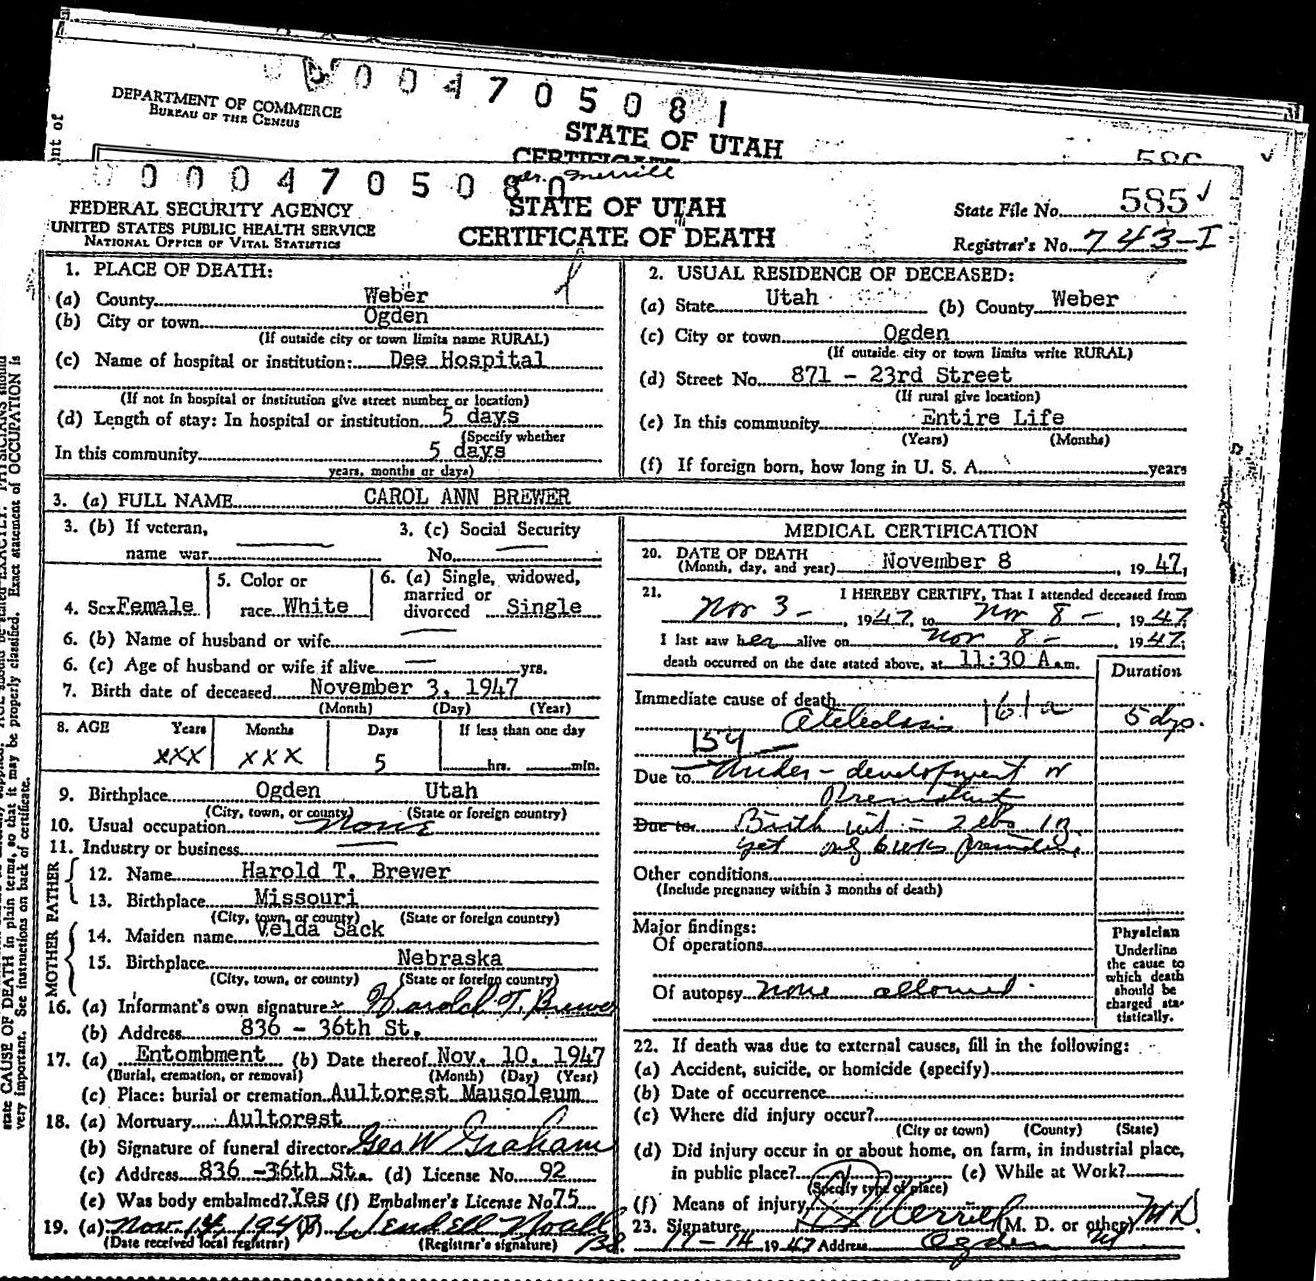 0 0 4 7 0 5 0 8 1
DEPARTMENT OF COMMERCE
BUREAU OF THE CENSUS
STATE OF UTAH
0 0 0 4 7 0 5 0 8 0
Merrill
FEDERAL SECURITY AGENCY
UNITED STATES PUBLIC HEALTH SERVICE
NATIONAL OFFICE OF VITAL STATISTICS
STATE OF UTAH
CERTIFICATE OF DEATH
State File No. 585
Registrar's No. 743-I
1. PLACE OF DEATH:
(a) County Weber
(b) City or town Ogden
(If outside city or town limits name RURAL)
(c) Name of hospital or institution: Dee Hospital
(If not in hospital or institution give street number or location)
(d) Length of stay: In hospital or institution 5 days
(Specify whether
In this community 5 days
years, months or days)
2. USUAL RESIDENCE OF DECEASED:
(a) State Utah (b) County Weber
(c) City or town Ogden
(If outside city or town limits write RURAL)
(d) Street No. 871 - 23rd Street
(If rural give location)
(e) In this community Entire Life
(Years) (Months)
(f) If foreign born, how long in U. S. A. years
3. (a) FULL NAME CAROL ANN BREWER
3. (b) If veteran,
name war
3. (c) Social Security
No.
4. Sex Female
5. Color or
race White
6. (a) Single, widowed,
married or
divorced Single
6. (b) Name of husband or wife
6. (c) Age of husband or wife if alive yrs.
7. Birth date of deceased November 3, 1947
(Month) (Day) (Year)
8. AGE Years Months Days If less than one day
XXX XXX 5 hrs. min.
9. Birthplace Ogden Utah
(City, town, or county) (State or foreign country)
10. Usual occupation None
11. Industry or business
FATHER
12. Name Harold T. Brewer
13. Birthplace Missouri
(City, town, or county) (State or foreign country)
MOTHER
14. Maiden name Velda Sack
15. Birthplace Nebraska
(City, town, or county) (State or foreign country)
16. (a) Informant's own signature x Harold T. Brewer
(b) Address 836 - 36th St.
17. (a) Entombment (b) Date thereof Nov. 10, 1947
(Burial, cremation, or removal) (Month) (Day) (Year)
(c) Place: burial or cremation Aultorest Mausoleum
18. (a) Mortuary Aultorest
(b) Signature of funeral director Geo W Graham
(c) Address 836 -36th St. (d) License No. 92
(e) Was body embalmed? Yes (f) Embalmer's License No 75
19. (a) Nov 14, 1947 (b) Wendell Noall
(Date received local registrar) (Registrar's signature)
MEDICAL CERTIFICATION
20. DATE OF DEATH
(Month, day, and year) November 8, 1947
21. I HEREBY CERTIFY, That I attended deceased from
Nov 3 -, 1947, to Nov 8 -, 1947
I last saw her alive on Nov 8 - 1947
death occurred on the date stated above, at 11:30 A.m.
Duration
Immediate cause of death
161a 5 dys.
154
Due to Under-development or
Due to Birth wt - 2 lbs
Other conditions
(Include pregnancy within 3 months of death)
Major findings:
Of operations
Of autopsy none allowed.
Physician
Underline
the cause to
which death
should be
charged sta-
tistically.
22. If death was due to external causes, fill in the following:
(a) Accident, suicide, or homicide (specify)
(b) Date of occurrence
(c) Where did injury occur?
(City or town) (County) (State)
(d) Did injury occur in or about home, on farm, in industrial place,
in public place? (e) While at Work?
(Specify type of place)
(f) Means of injury
23. Signature Merrill (M. D. or other) MD
11-14 1947 Address Ogden Ut
state CAUSE OF DEATH in plain terms, so that it may be properly classified. Exact statement of OCCUPATION is
very important. See instructions on back of certificate.